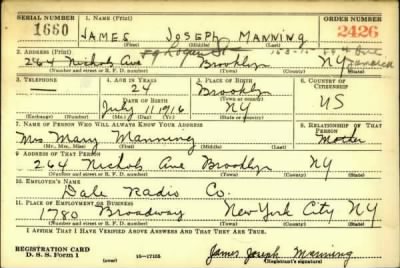 SERIAL NUMBER 1. NAME (Print) ORDER NUMBER
1660 JAMES JOSEPH MANNING 2426
(First) (Middle) (Last)
2. ADDRESS (Print) 89 Logan St
264 Nichols Ave Brooklyn NY Jamaica
(Number and street or R. F. D. number) (Town) (County) (State)
3. TELEPHONE 4. AGE IN YEARS 5. PLACE OF BIRTH 6. COUNTRY OF CITIZENSHIP
24 Brooklyn
(Town or county)
DATE OF BIRTH
July 11 1916 NY US
(Exchange) (Number) (Mo.) (Day) (Yr.) (State or country)
7. NAME OF PERSON WHO WILL ALWAYS KNOW YOUR ADDRESS 8. RELATIONSHIP OF THAT PERSON
Mrs Mary Manning Mother
(Mr., Mrs., Miss) (First) (Middle) (Last)
9. ADDRESS OF THAT PERSON
264 Nichols Ave Brooklyn NY
(Number and street or R. F. D. number) (Town) (County) (State)
10. EMPLOYER'S NAME
Dale Radio Co.
11. PLACE OF EMPLOYMENT OR BUSINESS
1780 Broadway New York City NY
(Number and street or R. F. D. number) (Town) (County) (State)
I AFFIRM THAT I HAVE VERIFIED ABOVE ANSWERS AND THAT THEY ARE TRUE.
REGISTRATION CARD
D. S. S. Form 1 (over) 16-17105 James Joseph Manning
(Registrant's signature)